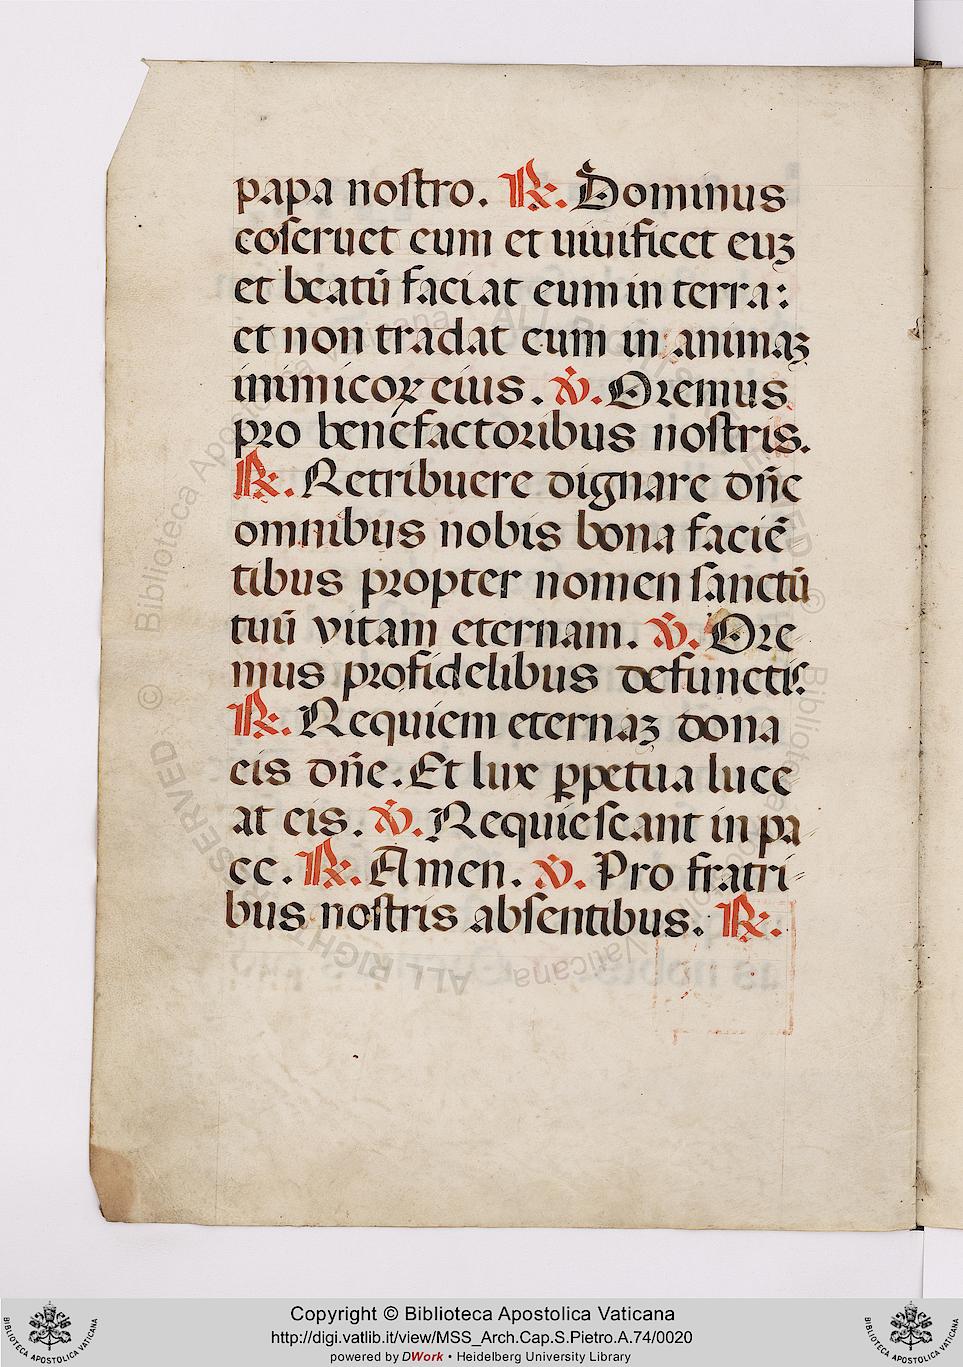 papa nostro. ℟. Dominus
coſeruet eum et uiuificet euꝫ
et beatū faciat eum in terra:
et non tradat eum in animaꝫ
inimicoꝝ eius. ℣. Oremus
pro benefactoribus noſtris.
℟. Retribuere dignare dn̄e
omnibus nobis bona faciē
tibus propter nomen ſanctū
tuū vitam eternam. ℣. Ore-
mus pro fidelibus defunctiſ.
℟. Requiem eternaꝫ dona
eis dn̄e. Et lux ꝑpetua luce
at eis. ℣. Requieſcant in pa-
ce. ℟. Amen. ℣. Pro fratri-
bus noſtris abſentibus. ℟.
Biblioteca Apostolica Vaticana ALL RIGHTS RESERVED ©
Copyright © Biblioteca Apostolica Vaticana
http://digi.vatlib.it/view/MSS_Arch.Cap.S.Pietro.A.74/0020
powered by DWork • Heidelberg University Library
BIBLIOTECA APOSTOLICA VATICANA
BIBLIOTECA APOSTOLICA VATICANA